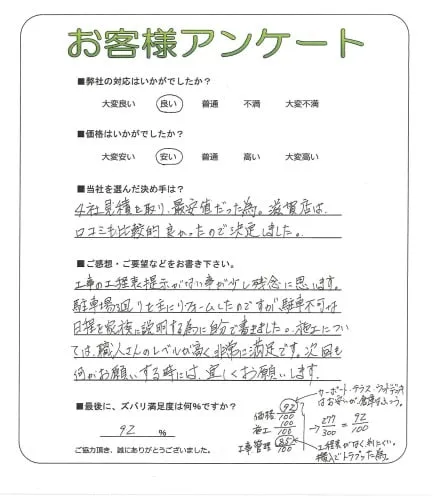 お客様アンケート
■弊社の対応はいかがでしたか？
大変良い 良い 普通 不満 大変不満
■価格はいかがでしたか？
大変安い 安い 普通 高い 大変高い
■当社を選んだ決め手は？
4社見積を取り、最安値だった為。滋賀店は、
口コミも比較的良かったので決定しました。
■ご感想・ご要望などをお書き下さい。
工事の工程表提示がない事が少し残念に思います。
駐車場廻りを主にリフォームしたのですが駐車不可な
日程を家族に説明する為に自分で書きました。施工につい
ては、職人さんのレベルが高く非常に満足です。次回も
何かお願いする時には、宜しくお願いします。
■最後に、ズバリ満足度は何％ですか？
92 ％
ご協力頂き、誠にありがとうございました。
カーポート・テラス・ウッドデッキ
はお安いが、倉庫はふつう。
価格 92/100
施工 100/100
工事管理 85/100
→ 277/300 = 92/100
工程表がなく、判りにくい。
搬入でトラブった為。